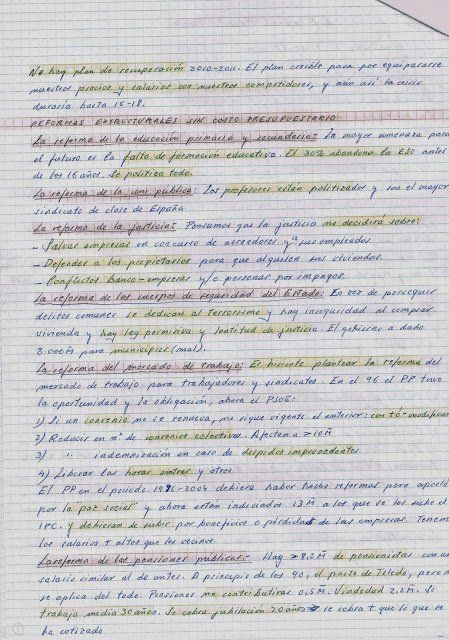 No hay plan de recuperación 2010-2011. El plan creíble pasa por equipararse
nuestros precios y salarios con nuestros competidores, y aún así la crisis
duraría hasta 15-18.
REFORMAS ESTRUCTURALES SIN COSTO PRESUPUESTARIO
La reforma de la educación primaria y secundaria: La mayor amenaza para
el futuro es la falta de formación educativa. El 30% abandona la ESO antes
de los 16 años. Se politiza todo.
La reforma de la uni pública: Los profesores están politizados y son el mayor
sindicato de clase de España.
La reforma de la justicia: Pensamos que la justicia no decidirá sobre:
- Salvar empresas en concurso de acreedores y a sus empleados
- Defender a los propietarios para que alquilen sus viviendas.
- Conflictos banco-empresas y/o personas por impagos.
La reforma de los cuerpos de seguridad del Estado: En vez de perseguir
delitos comunes se dedican al terrorismo y hay inseguridad al comprar
vivienda y hay ley permisiva y lentitud de justicia. El gobierno a dado
8.000M para municipios (mal).
La reforma del mercado de trabajo: Es hiriente plantear la reforma del
mercado de trabajo para trabajadores y sindicatos. En el 96 el PP tuvo
la oportunidad y la obligación, ahora el PSOE:
1) Si un convenio no se renueva, no sigue vigente el anterior:
2) Reducir en nº de convenios colectivos. Afectan a ≥10M
3) " indemnización en caso de despidos improcedentes.
4) Liberar las horas extras y otros.
El PP en el periodo 1996-2004 debiera haber hecho reformas pero apostó
por la "paz social" y ahora están indiciados 13M a los que se les sube el
IPC. y debieran de subir por beneficios o pérdidas de las empresas. Tenemos
los salarios + altos que los vecinos.
La reforma de las pensiones públicas: Hay ≥8,2M de pensionistas con un
salario similar al de antes. A principio de los 90, el pacto de Toledo, pero no
se aplica del todo. Pensiones no contributivas 0,5M. Viudedad 2,2M. Se
trabaja media 30 años. Se cobra jubilación 20 años → se cobra + que lo que se
ha cotizado